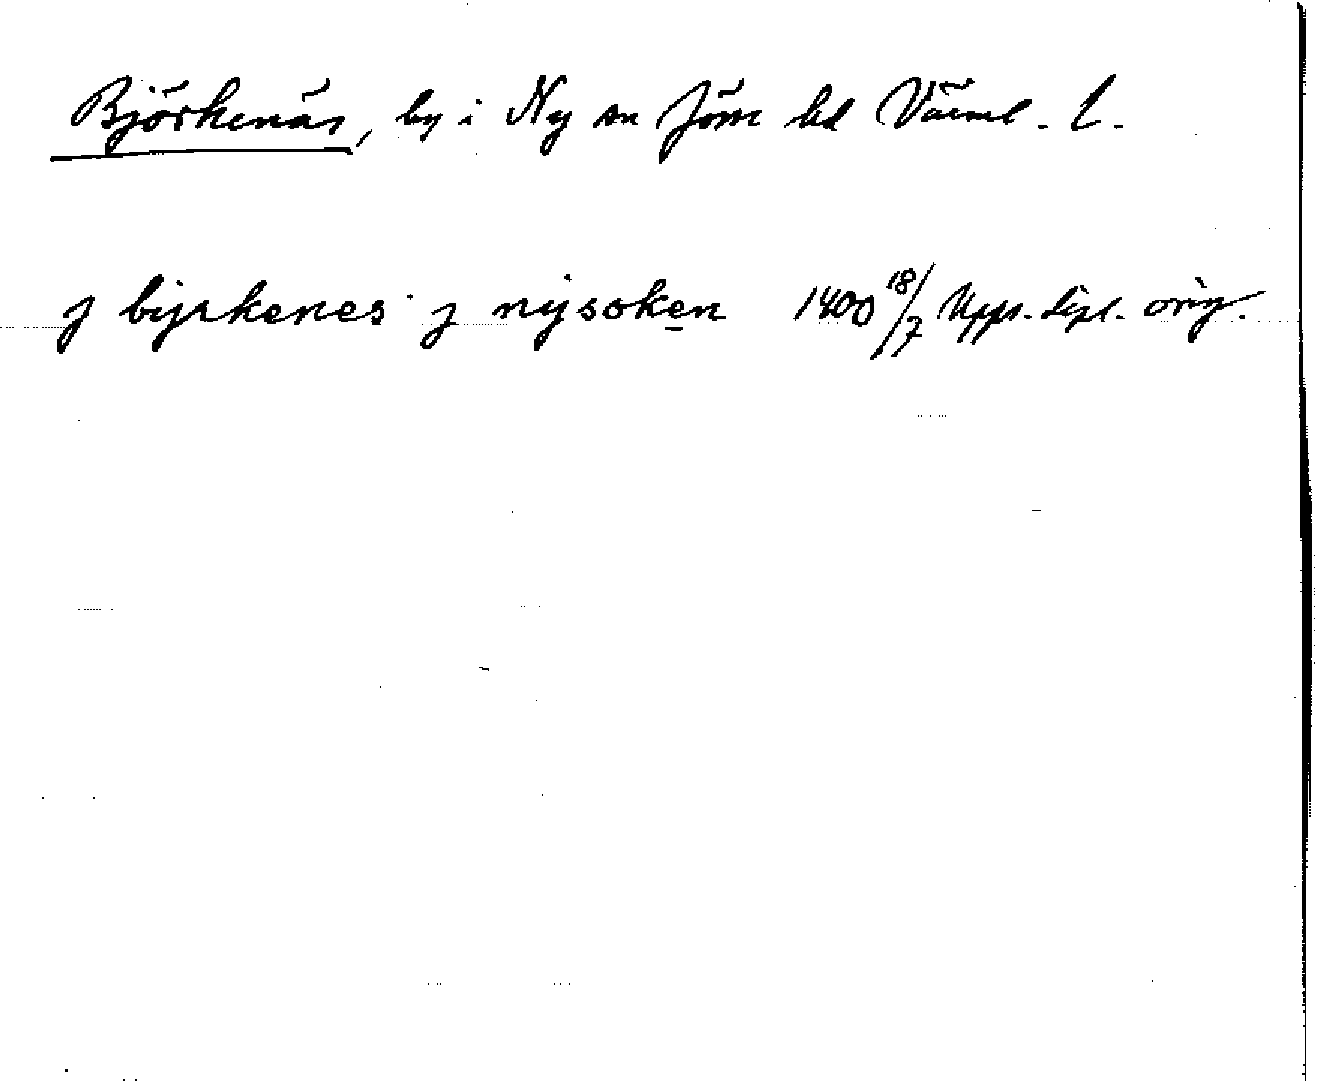 Björkenäs, by i Ny sn Jösse hd Värml. l.
j byrkenes j nysoken 1400 18/7 Upps. dipl. orig.